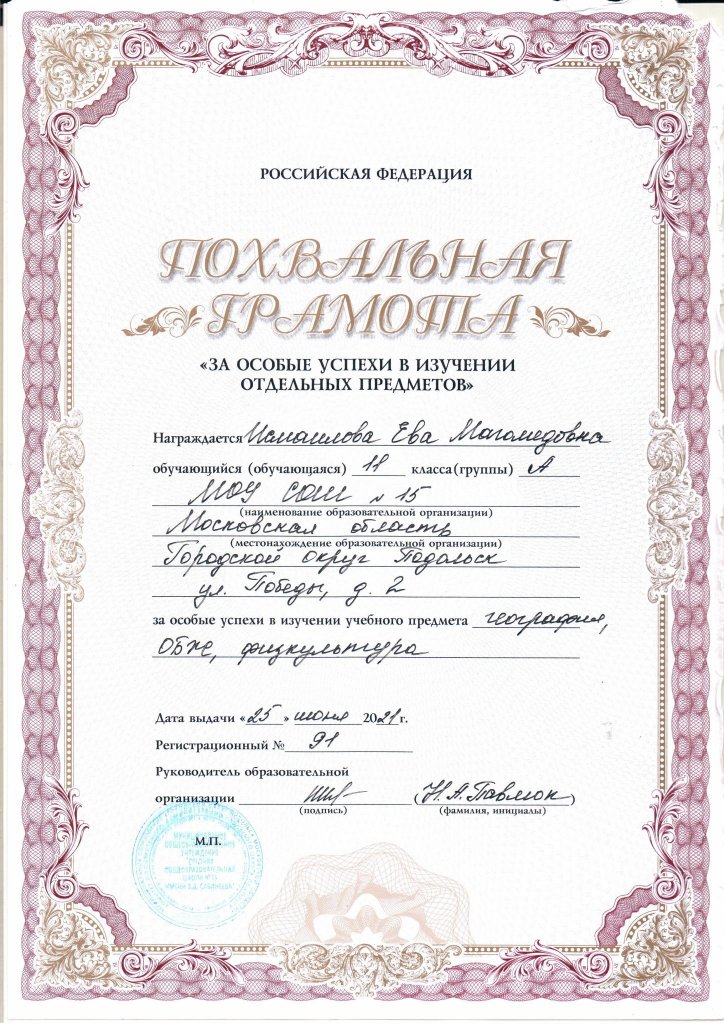 РОССИЙСКАЯ ФЕДЕРАЦИЯ
ПОХВАЛЬНАЯ
ГРАМОТА
«ЗА ОСОБЫЕ УСПЕХИ В ИЗУЧЕНИИ
ОТДЕЛЬНЫХ ПРЕДМЕТОВ»
Награждается Исмаилова Ева Магомедовна
обучающийся (обучающаяся) 11 класса(группы) А
МОУ СОШ №15
(наименование образовательной организации)
Московская область
(местонахождение образовательной организации)
Городской округ Подольск
ул. Победы, д. 2
за особые успехи в изучении учебного предмета география,
ОБЖ, физкультура
Дата выдачи «25» июня 2021г.
Регистрационный № 91
Руководитель образовательной
организации (Н.А.Павлюк)
(подпись) (фамилия, инициалы)
М.П.